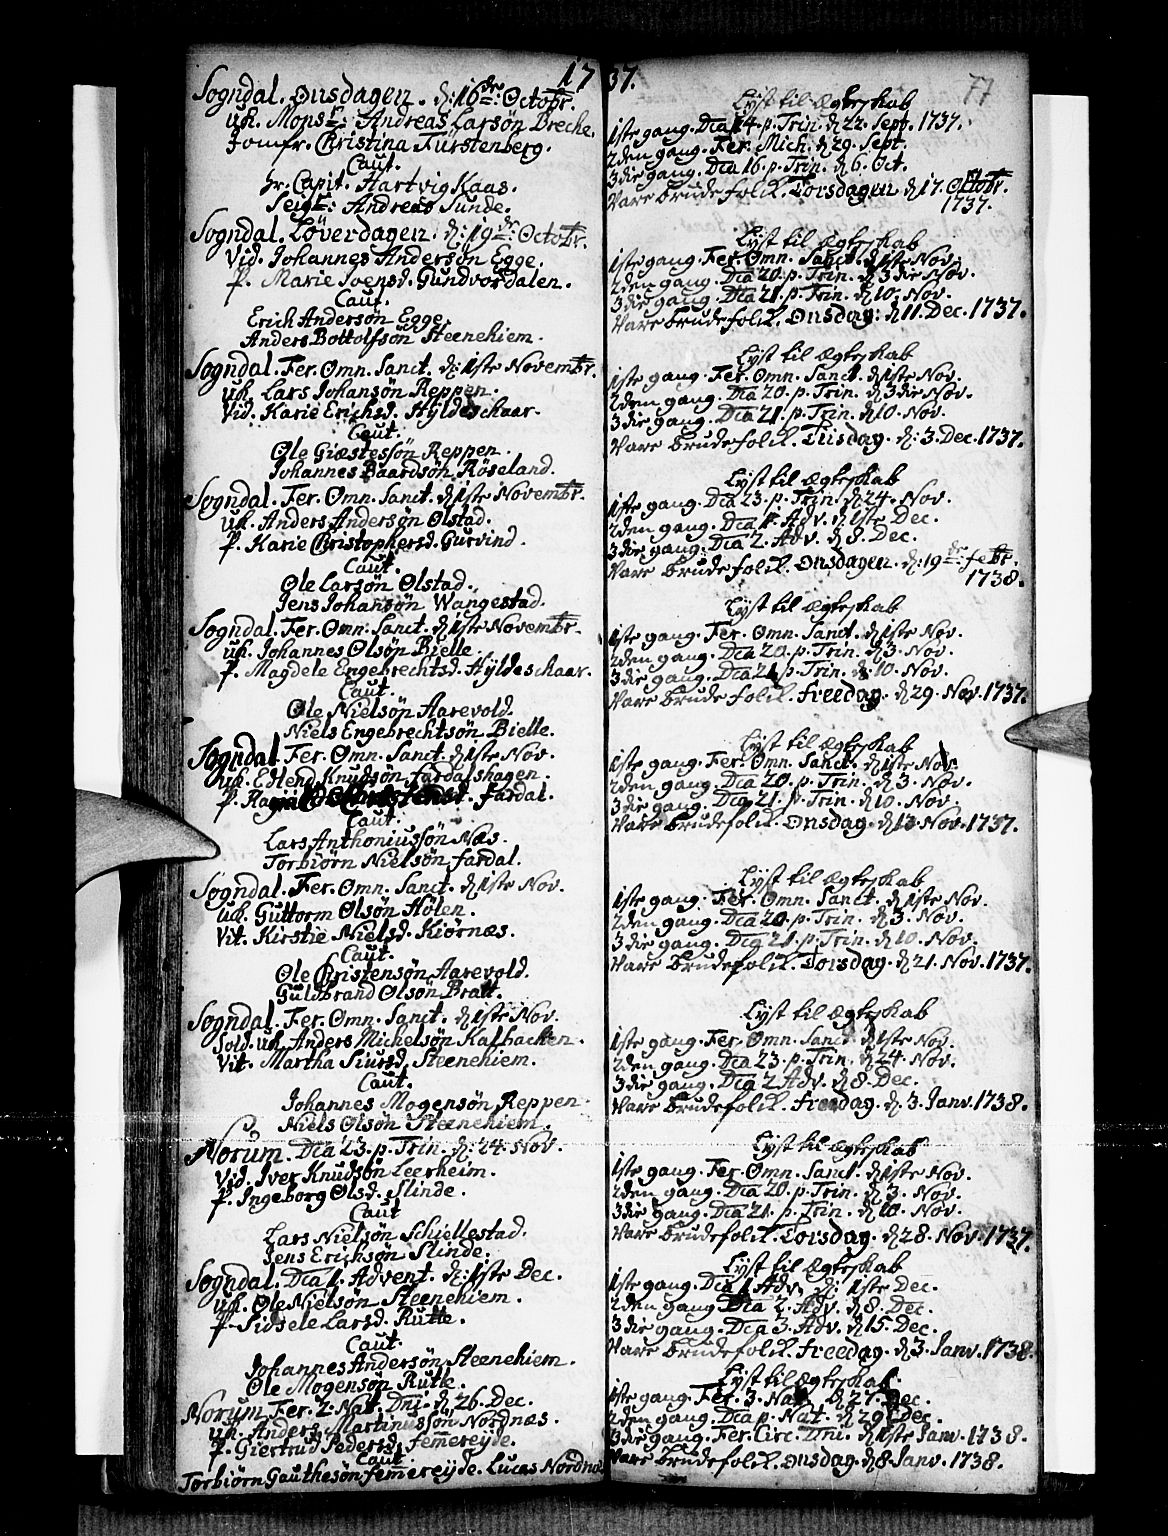 1737.
77
Sogndal. Onsdagen. d: 16de: Octobr.
uk. Monsr: Andreas Larsøn Breche.
Jomfr. Christina Fürstenberg.
Caut.
Hr. Capit. Hartvig Kaas.
Seigr: Andreas Sunde.
Sogndal. Løverdagen. d: 19de: Octobr.
Vid. Johannes Andersøn Egge.
P. Marie Joensd. Gundvordalen.
Caut.
Erich Andersøn Egge.
Anders Bottolfsøn Steenehiem.
Sogndal. Fer. Omn. Sanct. d: 1ste Novembr.
uk. Lars Johansøn Reppen.
Vid. Karie Erichsd. Hyldeschaar.
Caut.
Ole Giæstessøn Reppen.
Johannes Baardsøn Røseland.
Sogndal. Fer. Omn. Sanct. d: 1ste Novembr.
uk. Anders Andersøn Ølstad.
P. Karie Christophersd. Gurvind.
Caut.
Ole Larsøn Ølstad.
Jens Johansøn Wangestad.
Sogndal. Fer. Omn. Sanct. d: 1ste Novembr.
uk. Johannes Olsøn Bielle.
P. Magdele Engebrechtsd. Hyldeschaar.
Caut.
Ole Nielsøn Aarevold.
Niels Engebrechtsøn Bielle.
Sogndal Fer. Omn. Sanct. d: 1ste Nov.
uk. Edlend Knudsøn Fardalshagen.
P. Fardal.
Caut.
Lars Anthoniussøn Næs.
Torbiørn Nielsøn Fardal.
Sogndal. Fer. Omn. Sanct. d: 1ste Nov.
uk. Guttorm Olsøn Hølen.
Vit. Kirstie Nielsd. Kiørnæs.
Caut.
Ole Christensøn Aarevold.
Guldbrand Olsøn Bratt.
Sogndal. Fer. Omn. Sanct. d: 1ste Nov.
Sold. uk. Anders Michelsøn Kalbachen.
Vit. Martha Siursd. Steenehiem.
Caut.
Johannes Mogensøn Reppen.
Niels Olsøn Steenehiem.
Norum. Dca 23. p. Trin. d: 24. Nov.
Vid. Iver Knudsøn Leerheim.
P. Ingeborg Olsd. Slinde.
Caut
Lars Nielsøn Schiellestad.
Jens Erichsøn Slinde.
Sogndal. Dca 1. Advent. d: 1ste Dec.
uk. Ole Nielsøn Steenehiem.
P. Sidsele Larsd. Rutte.
Caut.
Johannes Andersøn Steenehiem.
Ole Mogensøn Rutte.
Norum Fer. 2. Nat. Dni. d: 26. Dec.
uk. Anders Martinussøn Nordnæs.
P. Giertrud Pedersd. Femmereyde.
Caut
Torbiørn Gauthesøn Femmereyde. Lucas Nordnæs
Lyst til Ægteskab
1ste gang. Dca 14. p. Trin. d: 22. Sept. 1737.
2den gang. Fer. Mich. d: 29. Sept.
3die gang. Dca 16. p. Trin. d: 6. Oct.
Vare brudefolck. Torsdagen d: 17. Octobr.
1737.
Lyst til Ægteskab
1ste gang. Fer. Omn. Sanct. d: 1ste Nov.
2den gang. Dca 20. p. Trin. d: 3die Nov.
3die gang. Dca 21. p. Trin. d: 10. Nov.
Vare brudefolck. Onsdag: d: 11. Dec. 1737.
Lyst til Ægteskab
1ste gang. Fer. Omn. Sanct. d: 1ste Nov.
2den gang. Dca 20. p. Trin. d: 3die Nov.
3die gang. Dca 21. p. Trin. d: 10. Nov.
Vare brudefolck. Tiisdag. d: 3. Dec. 1737.
Lyst til Ægteskab
1ste gang. Dca 23. p. Trin. d: 24. Nov.
2den gang. Dca 1. Adv. d: 1ste Dec.
3die gang. Dca 2. Adv. d: 8. Dec.
Vare brudefolck. Onsdagen. d: 19de: Febr.
1738.
Lyst til Ægteskab
1ste gang. Fer. Omn. Sanct. d: 1ste Nov.
2den gang. Dca 20. p. Trin. d: 3. Nov.
3die gang. Dca 21. p. Trin. d: 10. Nov.
Vare brudefolck. Freedag. d: 29. Nov. 1737.
Lyst til Ægteskab
1ste gang. Fer. Omn. Sanct. d: 1ste Nov.
2den gang. Dca 20. p. Trin. d: 3. Nov.
3die gang. Dca 21. p. Trin. d: 10. Nov.
Vare brudefolck. Onsdag. d: 13. Nov. 1737.
Lyst til Ægteskab
1ste gang. Fer. Omn. Sanct. d: 1ste Nov.
2den gang. Dca 20. p. Trin. d: 3. Nov.
3die gang. Dca 21. p. Trin. d: 10. Nov.
Vare brudefolck. Torsdag. d: 21. Nov. 1737.
Lyst til Ægteskab
1ste gang. Fer. Omn. Sanct. d: 1ste Nov.
2den gang. Dca 23. p. Trin. d: 24. Nov.
3die gang. Dca 2 Adv. d: 8. Dec.
Vare brudefolck. Freedag. d: 3. Janv. 1738.
Lyst til Ægteskab
1ste gang. Fer. Omn. Sanct. d: 1ste Nov.
2den gang. Dca 20. p. Trin. d: 3. Nov.
3die gang. Dca 21. p. Trin. d: 10. Nov.
Vare brudefolck. Torsdag. d: 28. Nov. 1737.
Lyst til Ægteskab
1ste gang. Dca 1 Adv. d: 1ste Dec.
2den gang. Dca 2. Adv. d: 8. Dec.
3die gang. Dca 3. Adv. d: 15. Dec.
Vare brudefolck. Freedag. d: 3. Janv. 1738.
Lyst til Ægteskab
1ste gang. Fer. 3. Nat. d: 27. Dec.
2den gang. Dca p. Nat. d: 29. Dec.
3die gang. Fer. Circ. Dni. d: 1ste Janv. 1738.
Vare brudefolck. Onsdag. d: 8. Janv. 1738.